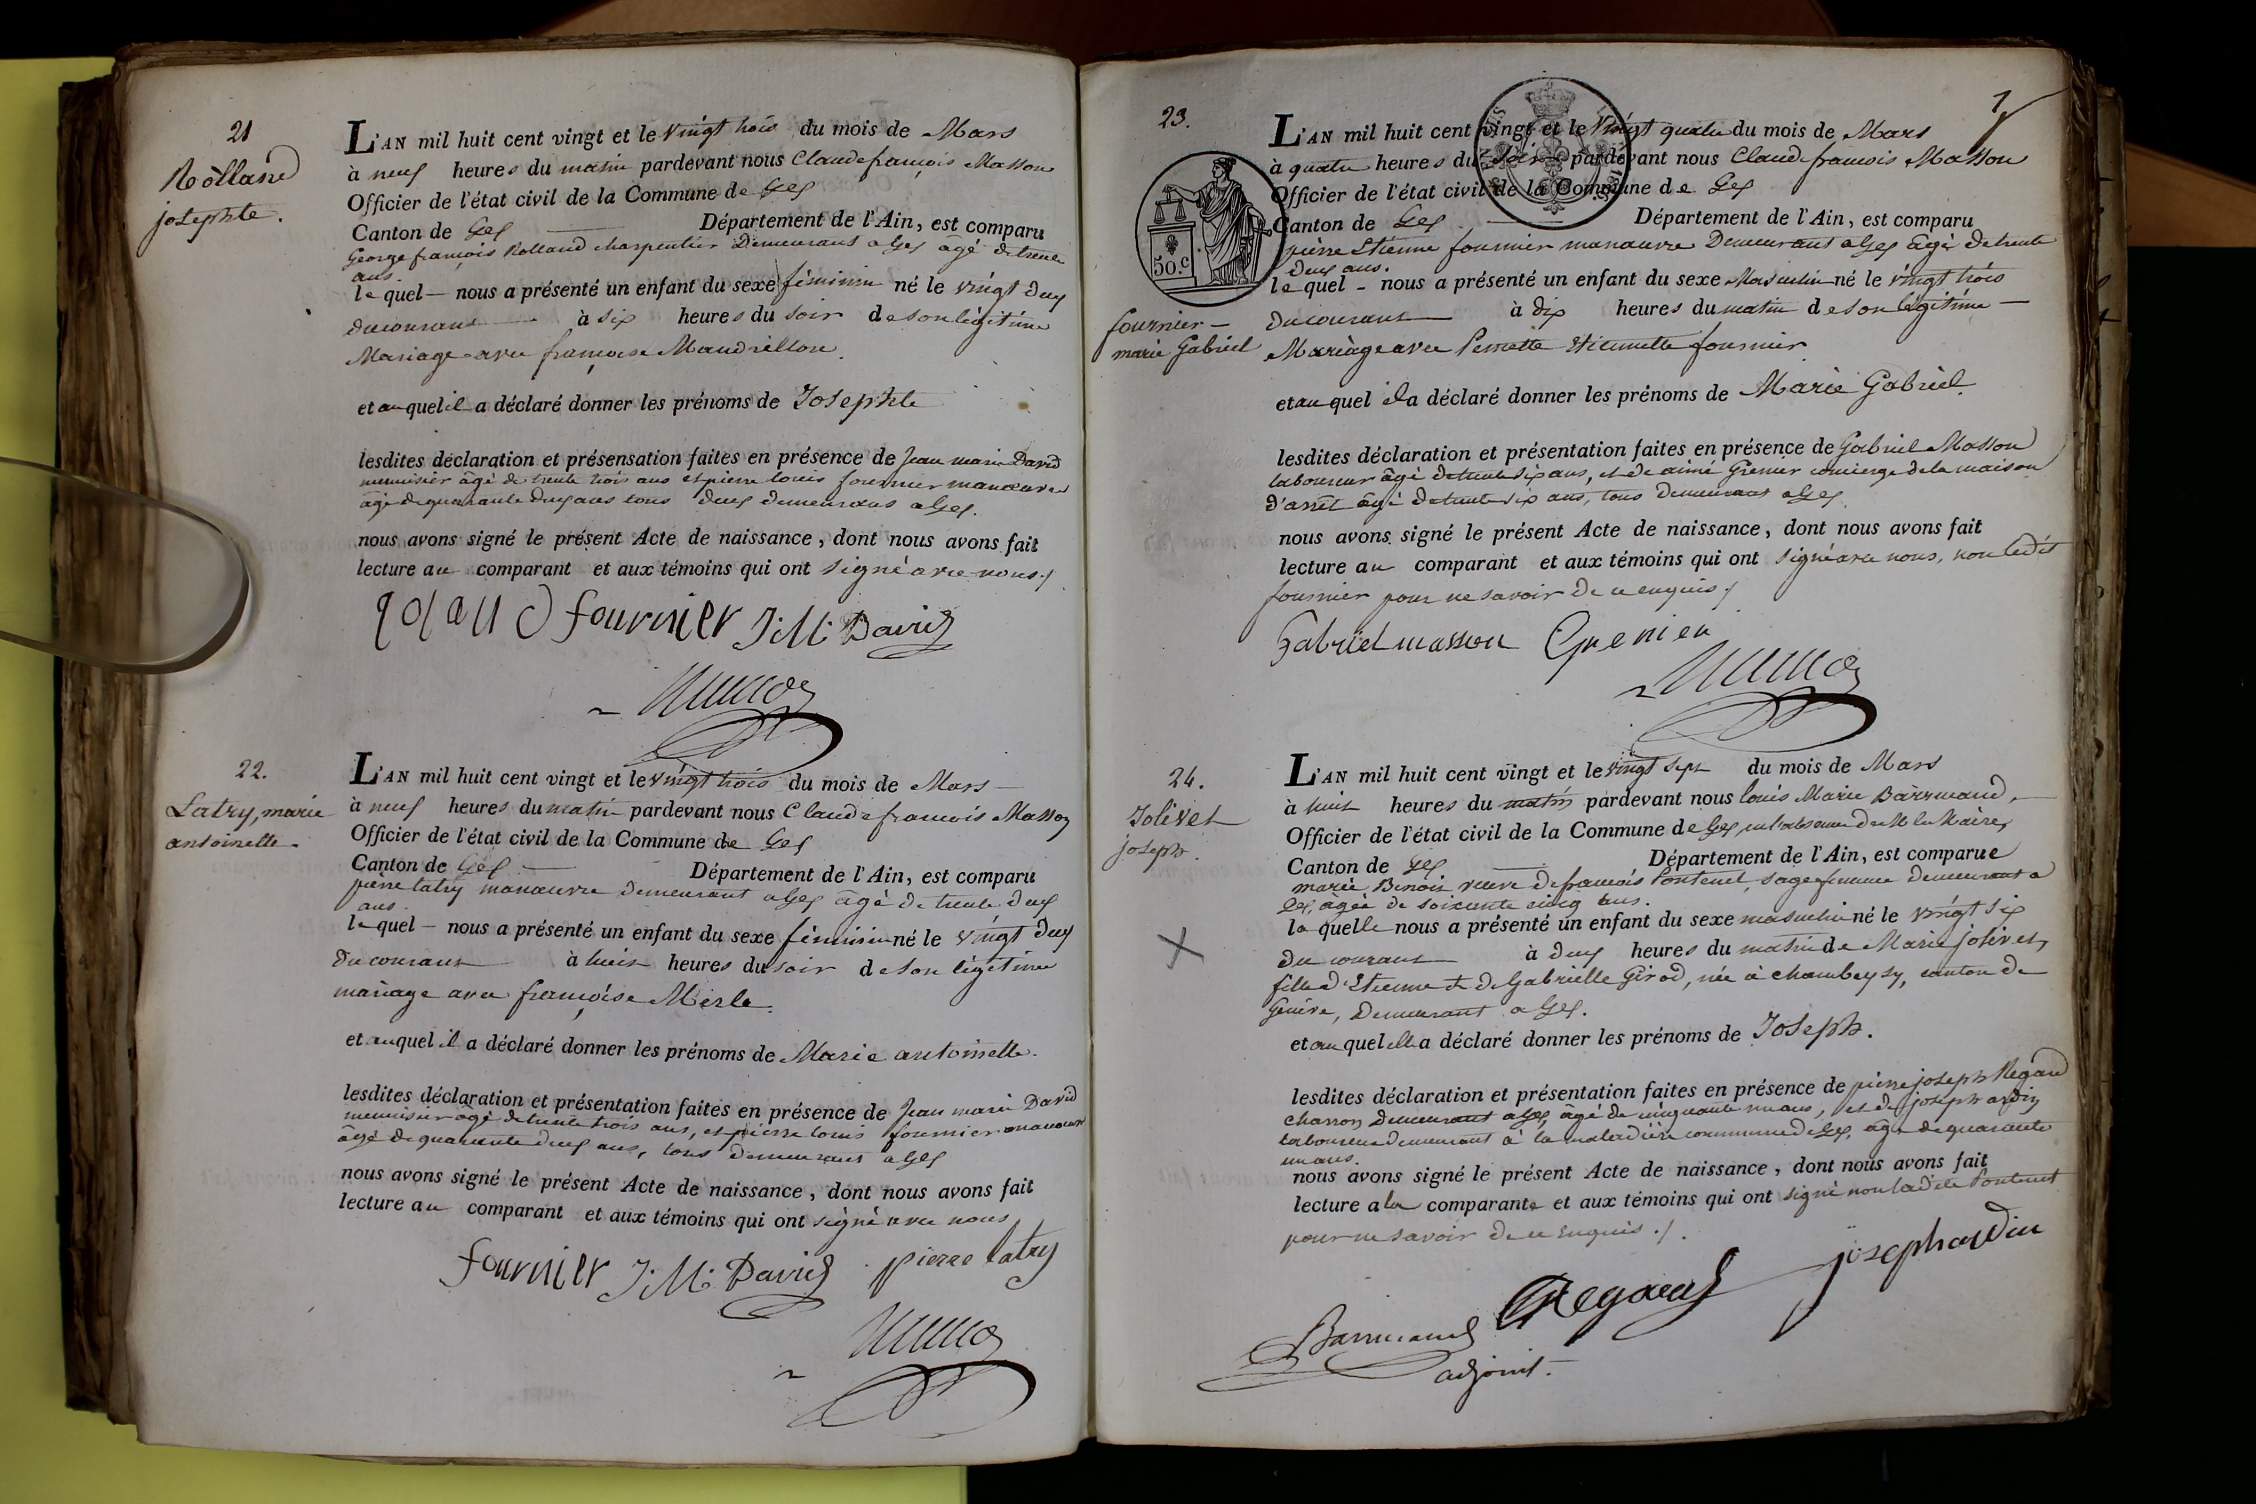 21
Rolland
josephte.
L'AN mil huit cent vingt et le vingt trois du mois de Mars
à neuf heures du matin pardevant nous Claude françois Masson
Officier de l'état civil de la Commune de Gex
Canton de Gex Département de l'Ain, est comparu
George françois Rolland charpentier Demeurant a Gex âgé de trente
ans.
le quel — nous a présenté un enfant du sexe féminin né le vingt deux
du courant à six heures du soir de son légitime
Mariage avec françoise Mandrillon.
et au quel il a déclaré donner les prénoms de Josephte
lesdites déclaration et présensation faites en présence de Jean marie David
menuisier âgé de trente trois ans et pierre louis fournier manœuvre
âgé de quarante deux ans tous deux demeurans a Gex.
nous avons signé le présent Acte de naissance, dont nous avons fait
lecture au comparant et aux témoins qui ont signé avec nous ./
rolaud fournier J: M: David
22.
Latry, marie
antoinette.
L'AN mil huit cent vingt et le vingt trois du mois de Mars —
à neuf heures du matin pardevant nous Claude francois Masson
Officier de l'état civil de la Commune de Gex
Canton de Gex — Département de l'Ain, est comparu
pierre latry manœuvre demeurant a Gex âgé de trente deux
ans.
le quel — nous a présenté un enfant du sexe féminin né le vingt deux
du courant à huit heures du soir de son légitime
mariage avec françoise Merle.
et au quel il a déclaré donner les prénoms de Marie antoinette.
lesdites déclaration et présentation faites en présence de Jean marie David
menuisier âgé de trente trois ans, et pierre louis fournier manœuvre
âgé de quarante deux ans, tous demeurant a Gex
nous avons signé le présent Acte de naissance, dont nous avons fait
lecture au comparant et aux témoins qui ont signé avec nous
fournier J: M: David pierre latry
7
23.
50.c
fournier —
marie Gabriel
L'AN mil huit cent vingt et le vingt quatre du mois de Mars
à quatre heures du soir pardevant nous Claude francois Masson
Officier de l'état civil de la Commune de Gex
Canton de Gex Département de l'Ain, est comparu
pierre Etienne fournier manœuvre Demeurant a Gex âgé de trente
deux ans.
le quel - nous a présenté un enfant du sexe Masculin né le vingt trois
du courant à dix heures du matin de son légitime —
Mariage avec Pernette Etiennette fournier.
et au quel il a déclaré donner les prénoms de Marie Gabriel.
lesdites déclaration et présentation faites en présence de Gabriel Masson
laboureur âgé de trente six ans, et de aimé Grenier concierge de la maison
d'arrêt âgé de trente six ans, tous demeurant a Gex.
nous avons signé le présent Acte de naissance, dont nous avons fait
lecture au comparant et aux témoins qui ont signé avec nous, non ledit
fournier pour ne savoir de ce enquis ./
Gabriel masson Grenier
24.
Jolivet
joseph.
L'AN mil huit cent vingt et le vingt sept du mois de Mars
à huit heures du matin pardevant nous louis Marie Barrmand, —
Officier de l'état civil de la Commune de Gex en l'absence de M le Maire,
Canton de Gex Département de l'Ain, est comparue
marie Benoit veuve de francois Pontenet, sage femme demeurant a
Gex, âgée de soixante cinq ans.
la quelle nous a présenté un enfant du sexe masculin né le vingt six
du courant à deux heures du matin de Marie jolivet,
fille d'Etienne et de Gabrielle Girod, née à chambeysy, canton de
Genève, Demeurant a Gex.
et au quel elle a déclaré donner les prénoms de Joseph.
lesdites déclaration et présentation faites en présence de pierre joseph Regard
charron demeurant a Gex, âgé de cinquante un ans, et de joseph ardin
laboureur demeurant à la maladière commune de Gex, âgé de quarante
un ans.
nous avons signé le présent Acte de naissance, dont nous avons fait
lecture a la comparante et aux témoins qui ont signé non ladite Pontenet
pour ne savoir de ce enquis ./.
Regard joseph ardin
Barrmand
adjoint.